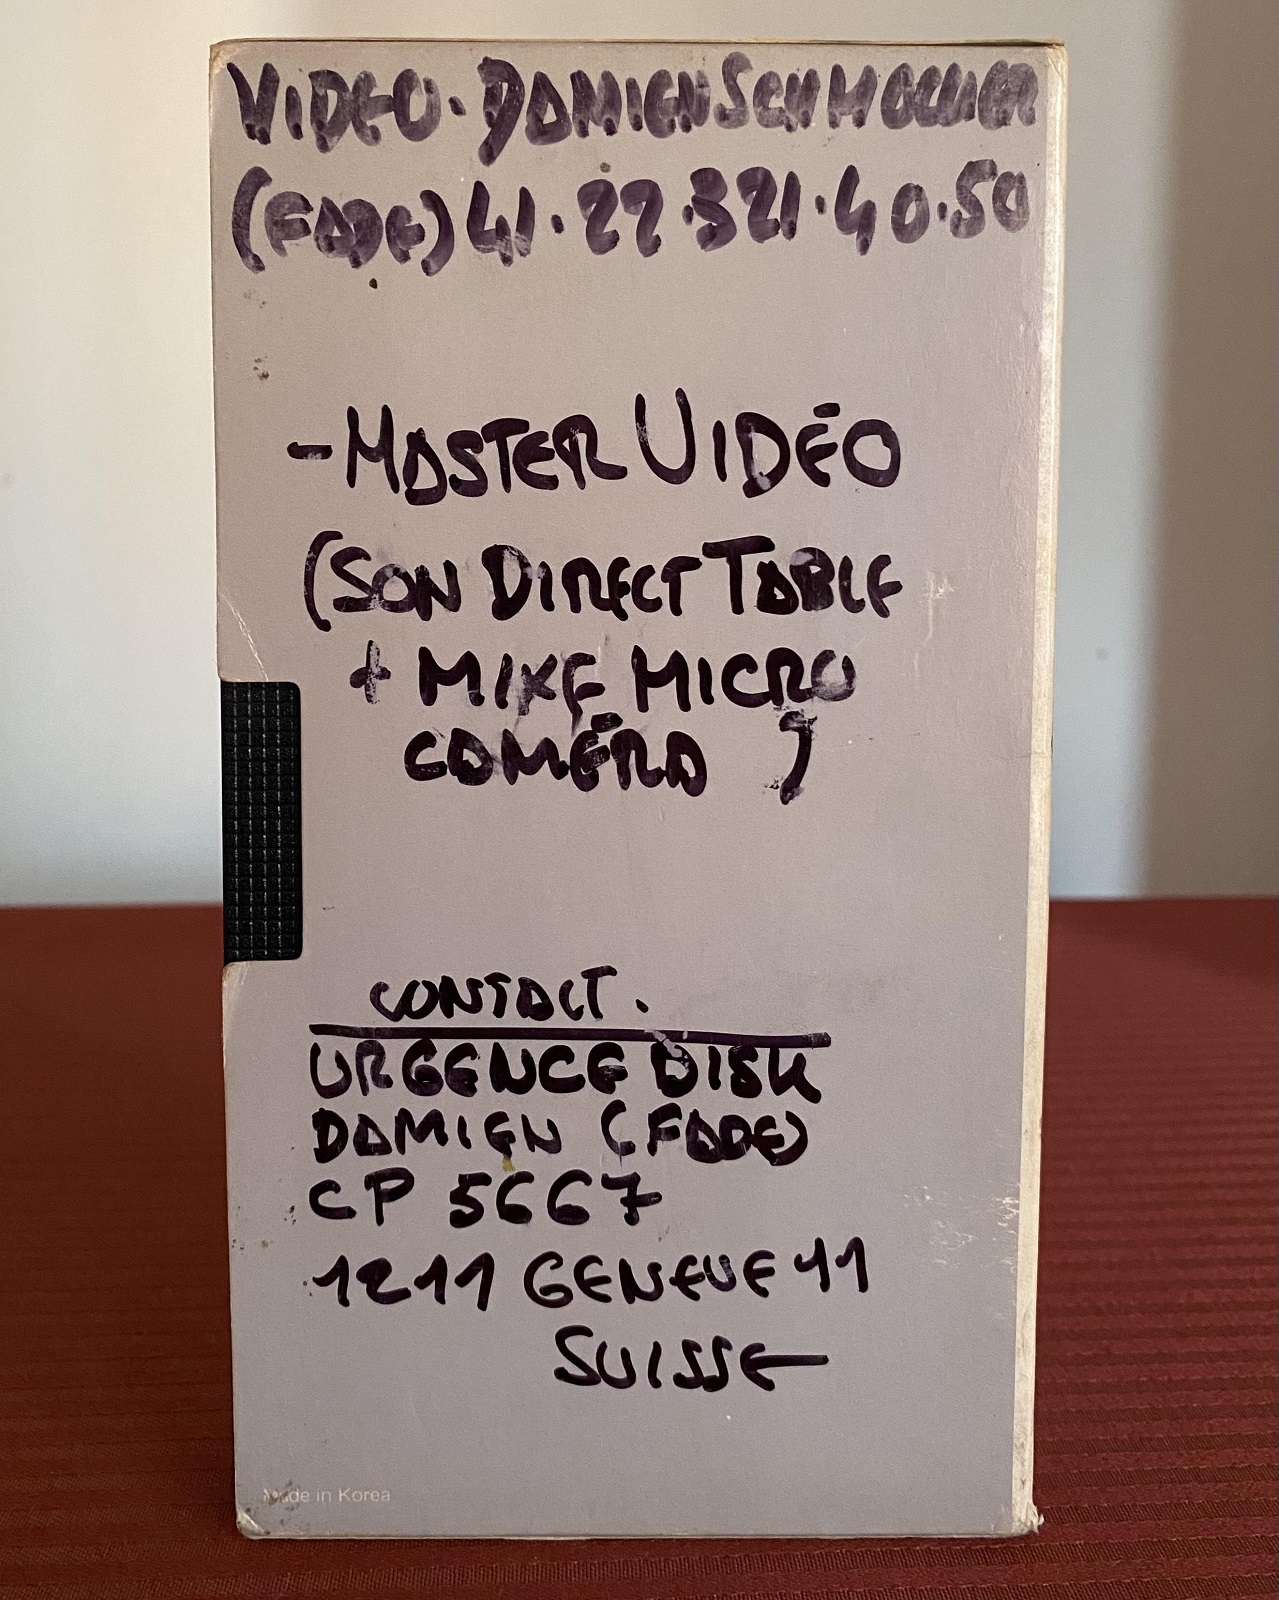 VIDEO. DAMIEN SCHMOCKER
(FADE) 41.22.321.40.50
- MASTER VIDÉO
(SON DIRECT TABLE
+ MIKE MICRO
CAMÉRA )
CONTACT.
URGENCE DISK
DAMIEN (FADE)
CP 5667
1211 GENEVE 11
SUISSE
Made in Korea